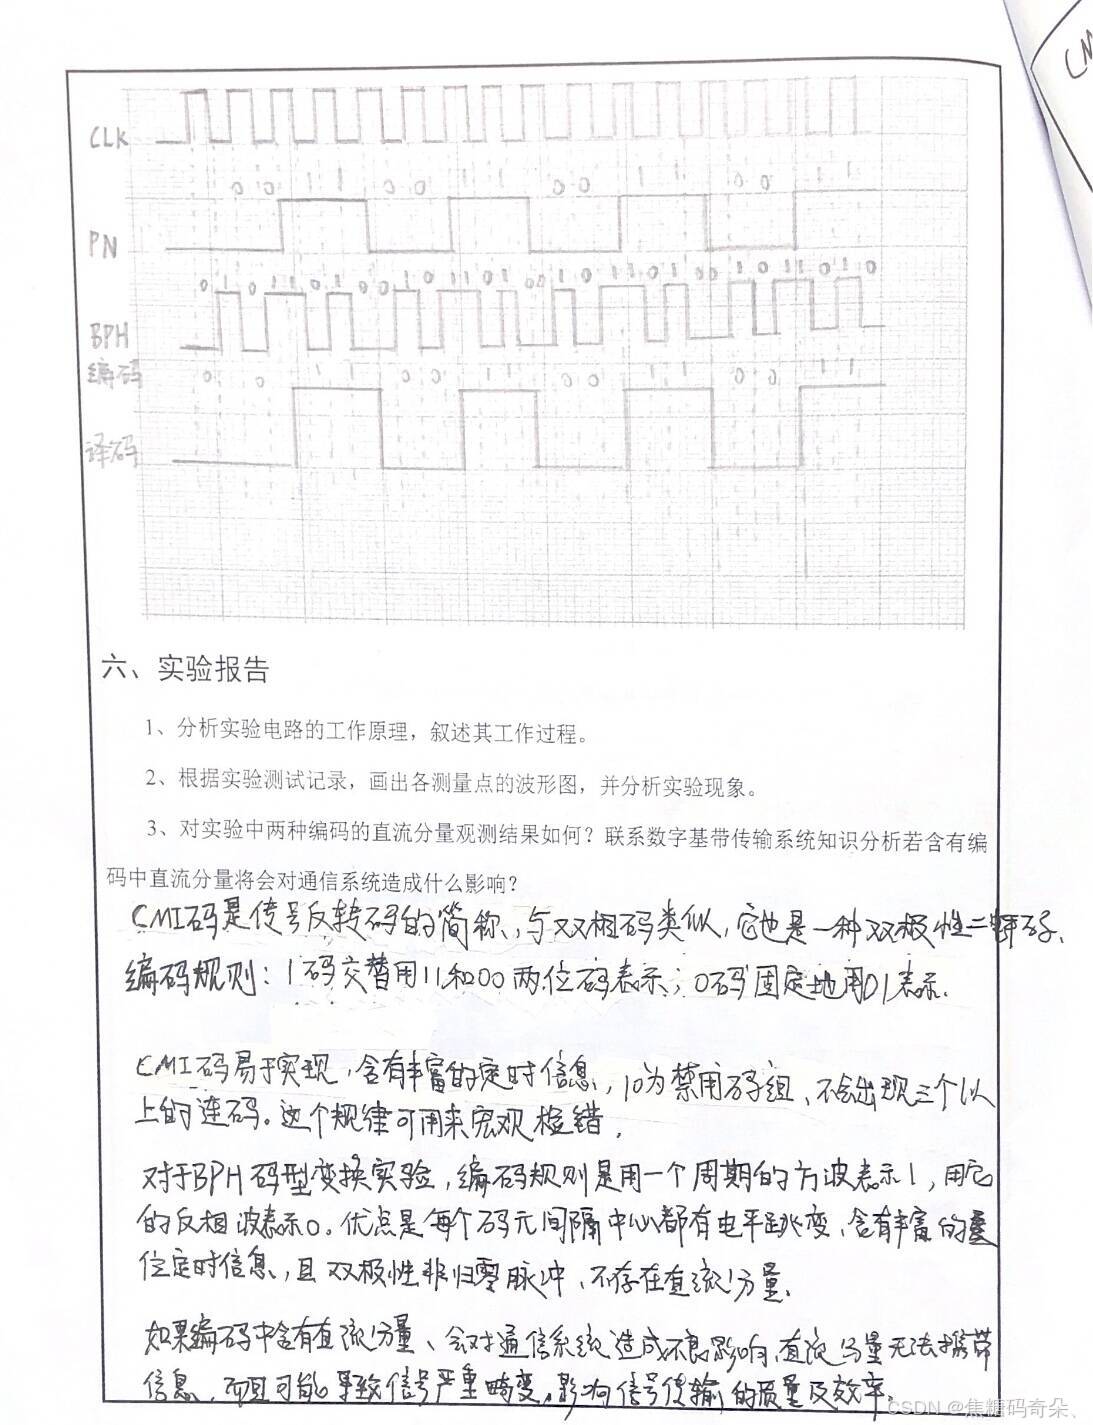 CM
CLK
0 0 1 1 0 0 1 1 0 0 1 1 0 0 1 1
PN
0 1 0 1 1 0 1 0 0 1 0 1 1 0 1 00 1 0 1 1 0 1 00 1 0 1 1 0 1 0
BPH
编码
0 0 1 1 0 0 1 1 0 0 1 1 0 0 1 1
译码
六、实验报告
1、分析实验电路的工作原理，叙述其工作过程。
2、根据实验测试记录，画出各测量点的波形图，并分析实验现象。
3、对实验中两种编码的直流分量观测结果如何？联系数字基带传输系统知识分析若含有编
码中直流分量将会对通信系统造成什么影响？
CMI码是传号反转码的简称、与双相码类似，它也是一种双极性二电平码、
编码规则：1码交替用11和00两位码表示；0码固定地用01表示.
CMI码易于实现，含有丰富的定时信息，10为禁用码组、不会出现三个以
上的连码。这个规律可用来宏观检错.
对于BPH码型变换实验，编码规则是用一个周期的方波表示1，用它
的反相波表示0。优点是每个码元间隔中心都有电平跳变，含有丰富的
位定时信息，且双极性非归零脉冲、不存在直流分量.
如果编码中含有直流分量、会对通信系统造成不良影响，直流分量无法携带
信息，而且可能导致信号严重畸变。影响信号传输的质量及效率。
CSDN @焦糖码奇朵、